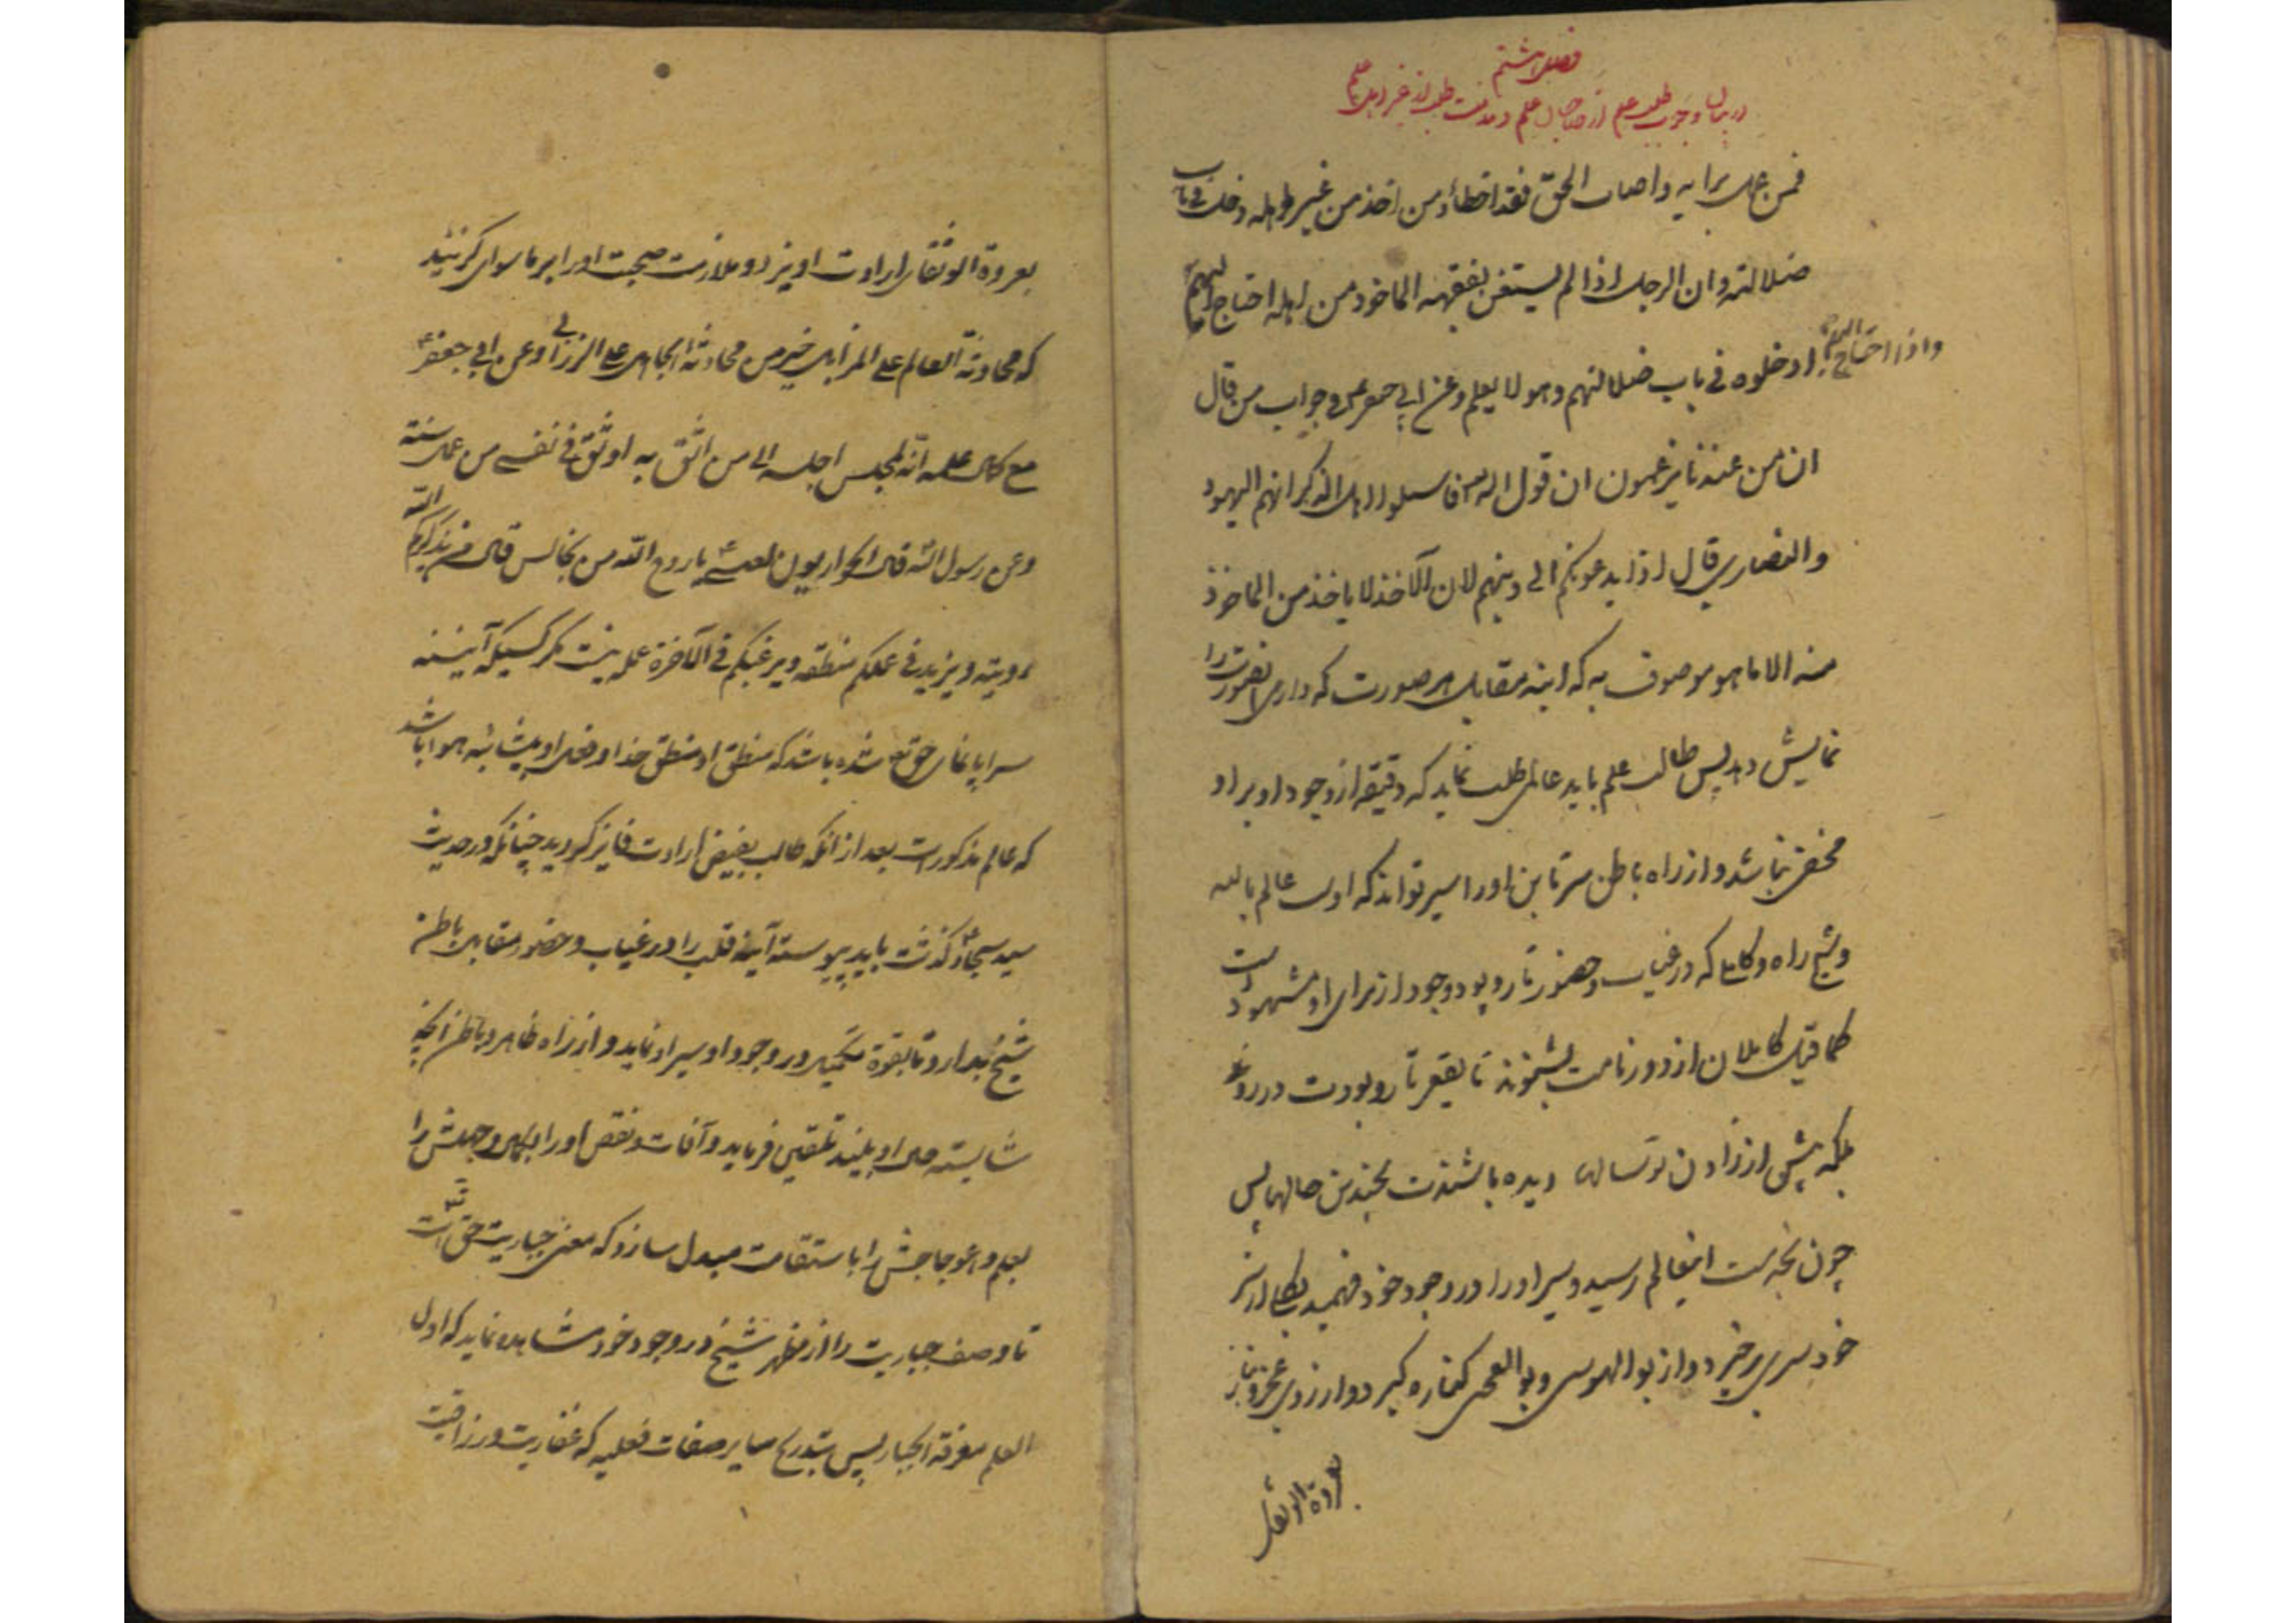 فصل هشتم
در بیان وجوب طلب علم از صاحبان علم و مذمت طلب از غیر اهل علم
فمن عمل برایه و اصاب الحق فقد اخطأ و من اخذ من غیر اهله دخل فی باب
ضلالته و ان الرجل اذا لم یستغن بفقهه الماخوذ من اهله احتاج الیهم
واذا احتاج الیهم ادخلوه فی باب ضلالتهم وهو لا یعلم وعن ابی جعفر فی جواب من قال
ان من عندنا یزعمون ان قول الله فاسلوا اهل الذکر انهم الیهود
والنصاری قال اذا یدعونکم الی دینهم لان الآخذ لا یاخذ من الماخوذ
منه الا ما هو موصوف به که اینه مقابل هر صورت که داری انصورت را
نمایش دهد پس طالب علم باید عالمی طلب نماید که دقیقه از وجود او بر او
مخفی نباشد و از راه باطن سر تا بن اورا سیر تواند که اوست عالم بالله
و شیخ راه و کاملی که در غیاب و حضور تار و پود وجود از برای او مشهود است
کما قیل کاملان از دور نامت بشنوند تا بقعر تار و پودت در روند
بلکه پیش از زادن تو سالها دیده باشندت بچندین حالها پس
چون بخدمت اینعالم رسید و سیر اورا در وجود خود فهمید
خودسری برخیزد و از بوالهوسی و بوالعجبی کناره گیرد و از روی عجز و نیاز
بعروة الوثقی
بعروة الوثقای ارادت اویزد و ملازمت صحبت اورا بر ماسوای گزیند
که محادثة العالم علی المزابل خیر من محادثة الجاهل علی الزرابی و عن ابی جعفر
مع کمال علمه انه لمجلس اجلسه الی من اثق به اوثق فی نفسی من عمل سنة
وعن رسول الله قال الحواریون لعیسی یا روح الله من نجالس قال من یذکرکم الله
رویته ویزید فی علمکم منطقه ویرغبکم فی الآخرة عمله نیست مگر کسیکه آیینه
سراپا نمای حق شده باشد که منطق او منطق خدا و فعل او بیشائبه هوا باشد
که عالم مذکورست بعد از انکه طالب بفیض ارادت فایز گردید چنانکه در حدیث
سید سجاد گذشت باید پیوسته آینه قلب را در غیاب و حضور مقابل باطن
شیخ بدارد تا بقوة تکمیل در وجود او سیر او نماید و از راه ظاهر و باطن آنچه
شایسته حال او بیند تلقین فرماید و آفات و نقص اورا بکمال و جهلش را
بعلم و اعوجاجش را باستقامت مبدل سازد که معنی جباریت حق است
تا وصف جباریت را از مظهر شیخ در وجود خود مشاهده نماید که اول
العلم معرفة الجبار پس بتدریج سایر صفات فعلیه که غفاریت و رزاقیت